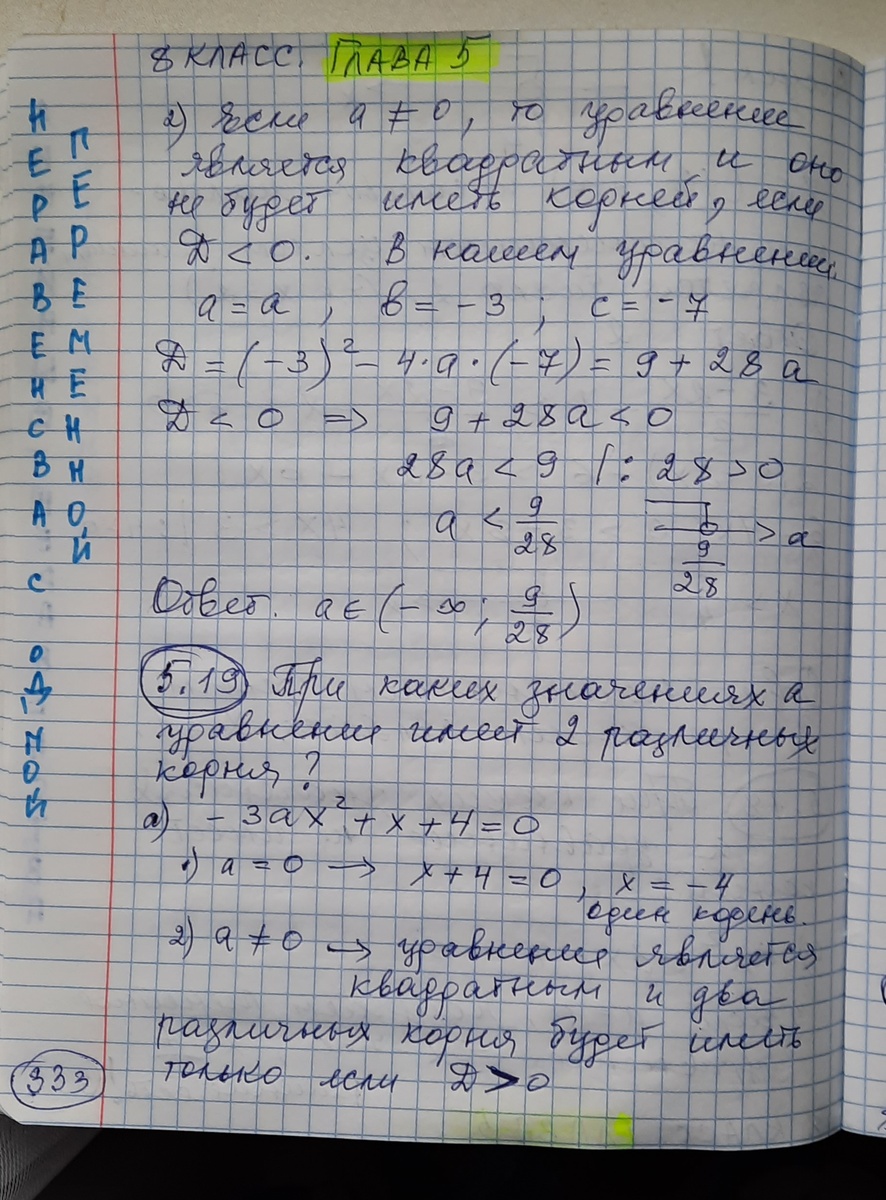 8 КЛАСС. ГЛАВА 5
НЕРАВЕНСВА С ОДНОЙ
ПЕРЕМЕННОЙ
2) Если a ≠ 0, то уравнение
является квадратным и оно
не будет иметь корней, если
D < 0. В нашем уравнении
a = a, b = -3; c = -7
D = (-3)² - 4·a·(-7) = 9 + 28a
D < 0 => 9 + 28a < 0
28a < 9 |: 28 > 0
a < 9/28 > a
9/28
Ответ. a ∈ (-∞; 9/28)
5.19 При каких значениях a
уравнение имеет 2 различных
корня?
a) -3ax² + x + 4 = 0
1) a = 0 → x + 4 = 0, x = -4
один корень.
2) a ≠ 0 → уравнение является
квадратным и два
различных корня будет иметь
только если D > 0
333